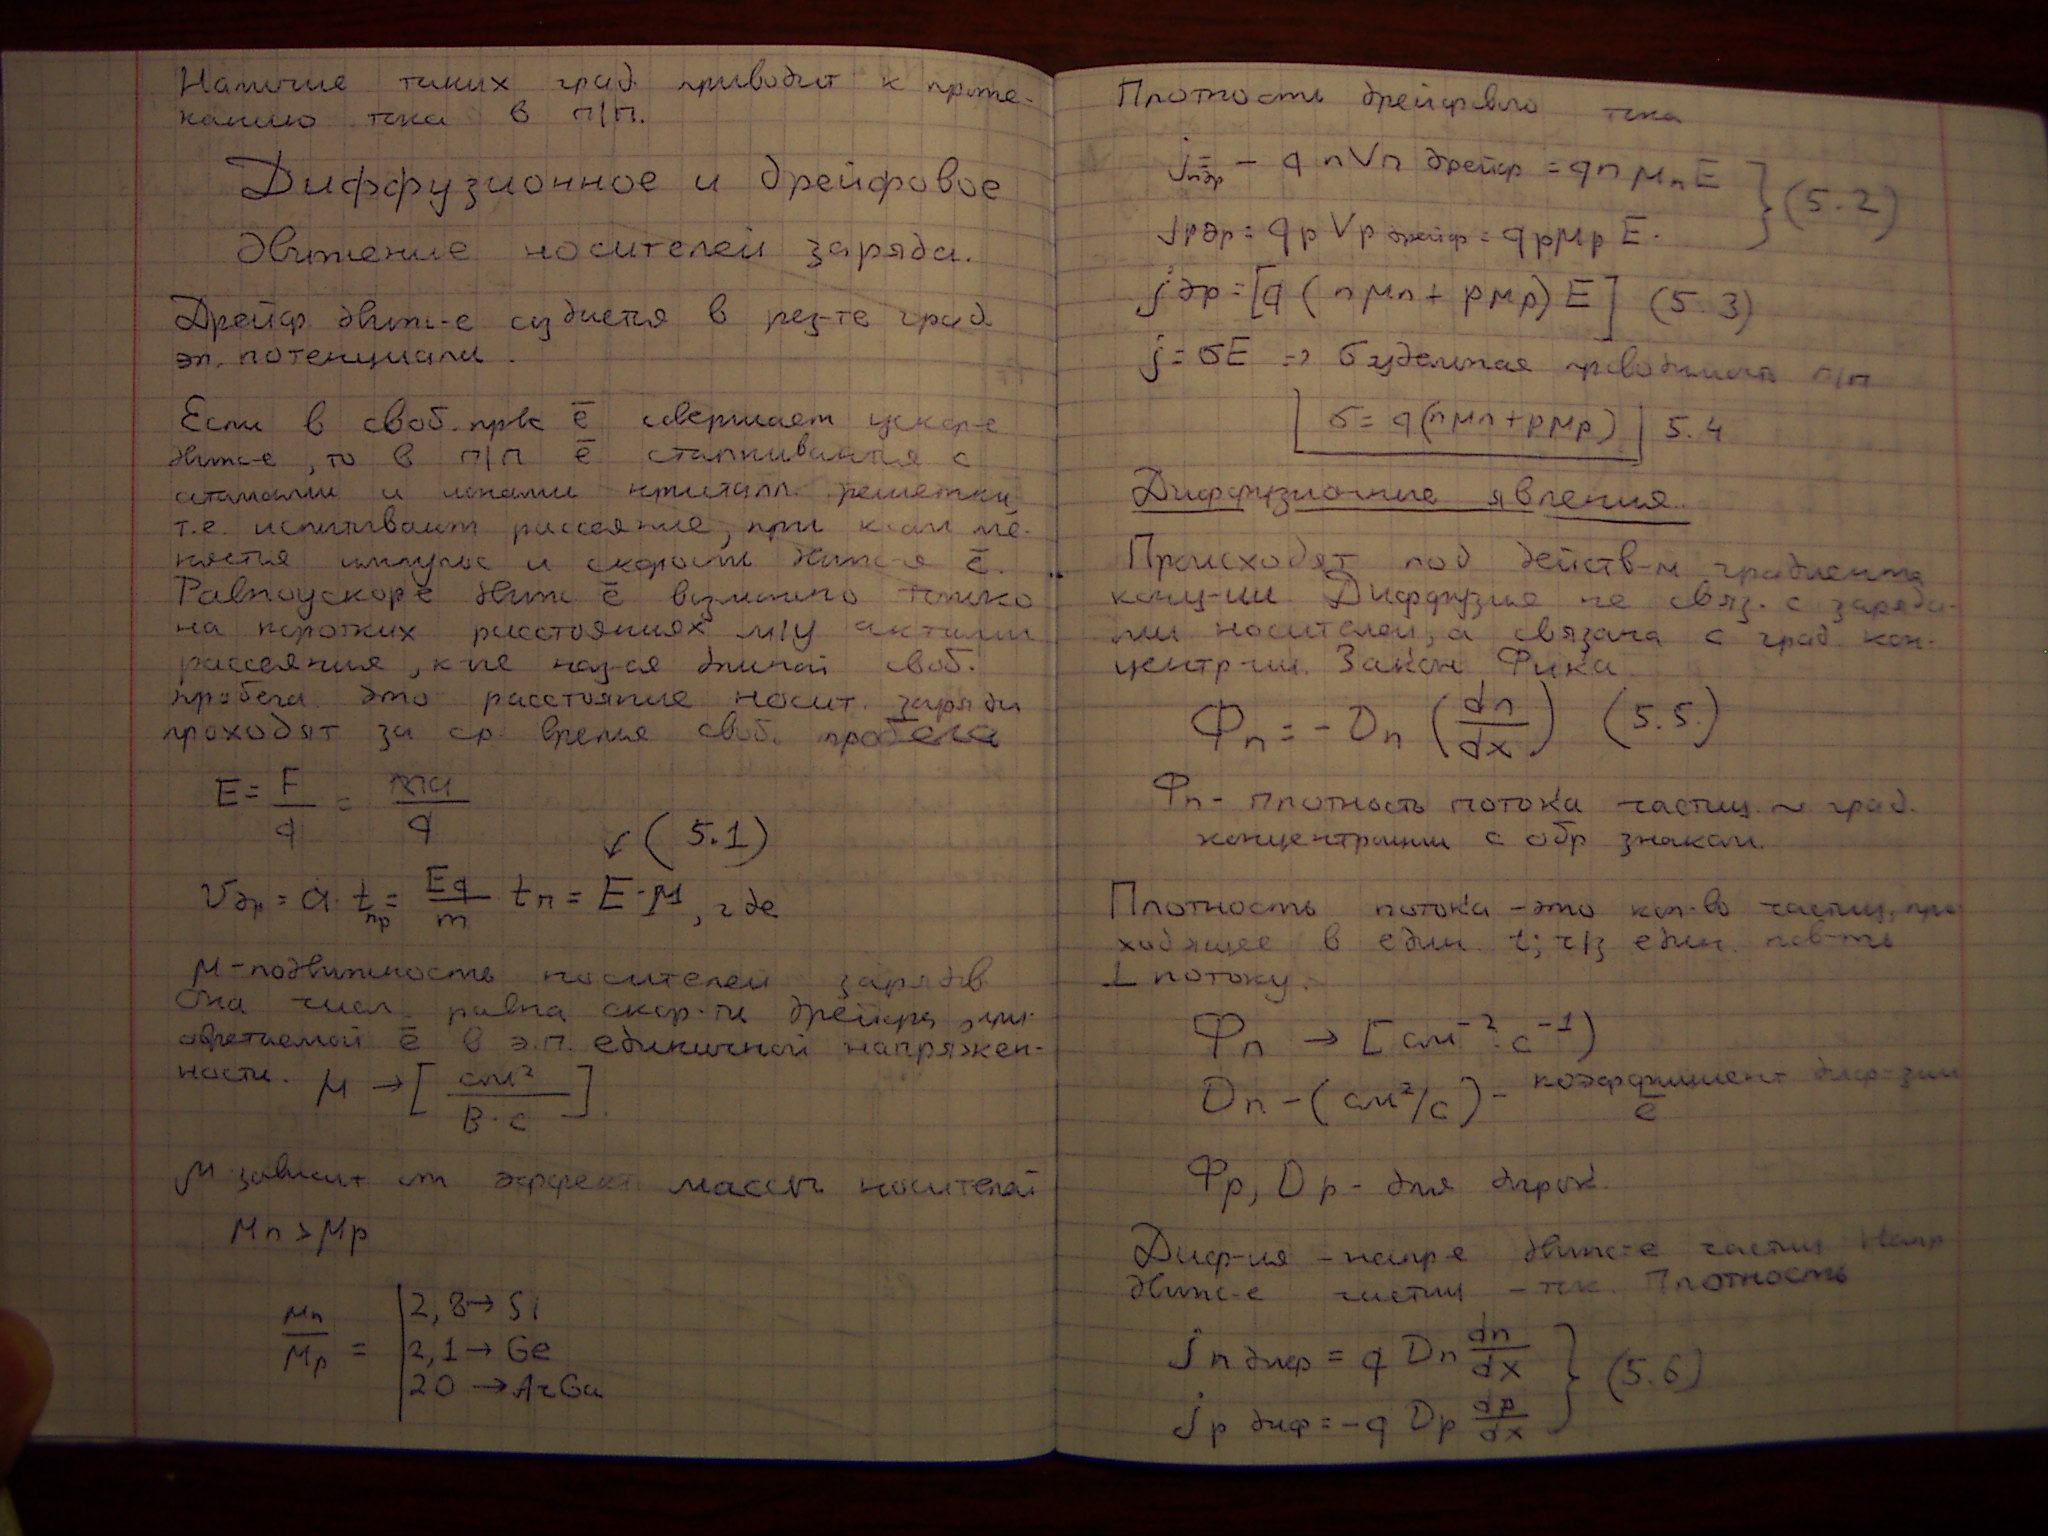 Наличие таких град. приводит к проте-
канию тока в п/п.
Диффузионное и дрейфовое
движение носителей заряда.
Дрейф. движ-е создается в рез-те град.
эл. потенциала.
Если в своб. пр-ве ē совершает ускор-е
движ-е, то в п/п ē сталкивается с
атомами и ионами кристалл. решетки,
т.е. испытывают рассеяние, при к-ом ме-
няется импульс и скорость движ-я ē.
Равноускор-е движ ē возможно только
на коротких расстояниях м/у актами
рассеяния, к-ые наз-ся длиной своб.
пробега. Это расстояние носит. заряда
проходят за ср. время своб. пробега
E = F/q = ma/q
↙ (5.1)
Vдр = a · tпр = Eq/m tп = E·μ, где
μ - подвижность носителей зарядов
Она числ. равна скор-ти дрейфа, при-
обретаемой ē в э.п. единичной напряжен-
ности. μ → [см²/В·с].
μ зависит от эффект. массы носителей
μn > μp
μn/μp = | 2,8 → Si
| 2,1 → Ge
| 20 → ArGa
Плотность дрейфового тока
jn др = - q n Vn дрейф = q n μn E } (5.2)
jp др = q p Vp дрейф = q p μp E.
j др = [q (n μn + p μp) E] (5.3)
j = σE => σ удельная проводимость п/п
σ = q(n μn + p μp) 5.4
Диффузионные явления.
Происходят под действ-м градиента
конц-ии Диффузия не связ. с заряда-
ми носителей, а связана с град. кон-
центр-ии. Закон Фика
Фn = - Dn (dn/dx) (5.5.)
Фn - плотность потока частиц ~ град.
концентрации с обр знаком.
Плотность потока - это кол-во частиц, про-
ходящее в един. t; ч/з един. пов-ть
⊥ потоку.
Фn → [см⁻²·с⁻¹)
Dn - (см²/с) - коэффициент диф-зии
ē
Фp, Dp - для дырок.
Диф-ия - напр-е движ-е частиц Напр
движ-е частиц - ток. Плотность
jn диф = q Dn dn/dx } (5.6)
jp диф = - q Dp dp/dx